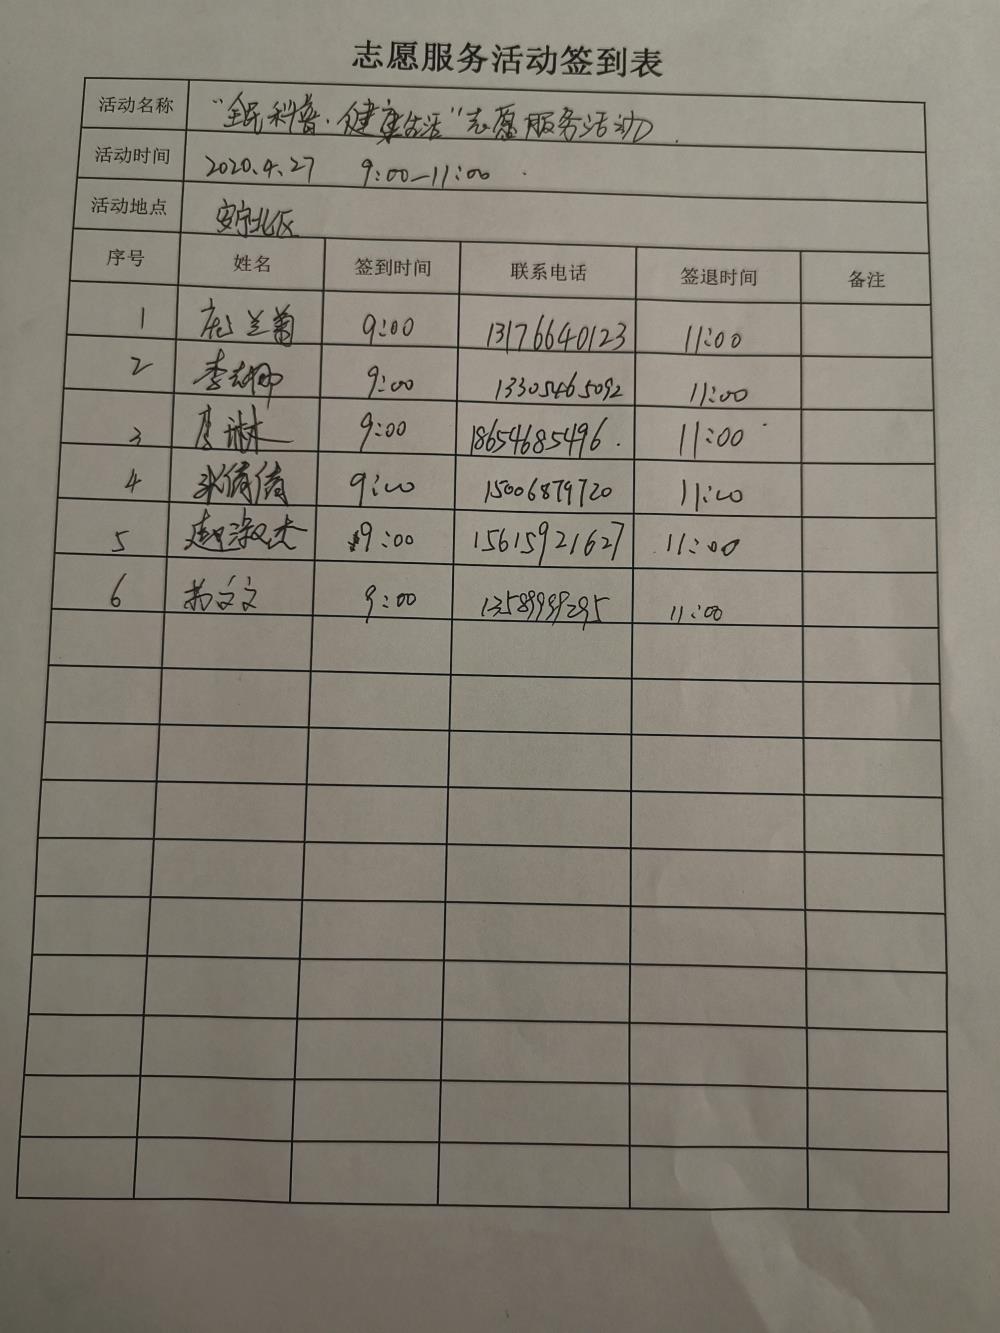 志愿服务活动签到表
活动名称 “全民科普·健康生活”志愿服务活动.
活动时间 2020.4.27 9:00—11:00
活动地点 安宁北区
序号 姓名 签到时间 联系电话 签退时间 备注
1 兰菊 9:00 13176640123 11:00
2 李志娜 9:00 13305465092 11:00
3 琳 9:00 18654685496. 11:00
4 倩倩 9:00 15006879720 11:00
5 赵淑杰 9:00 15615921627 11:00
6 苏文文 9:00 13589999295 11:00